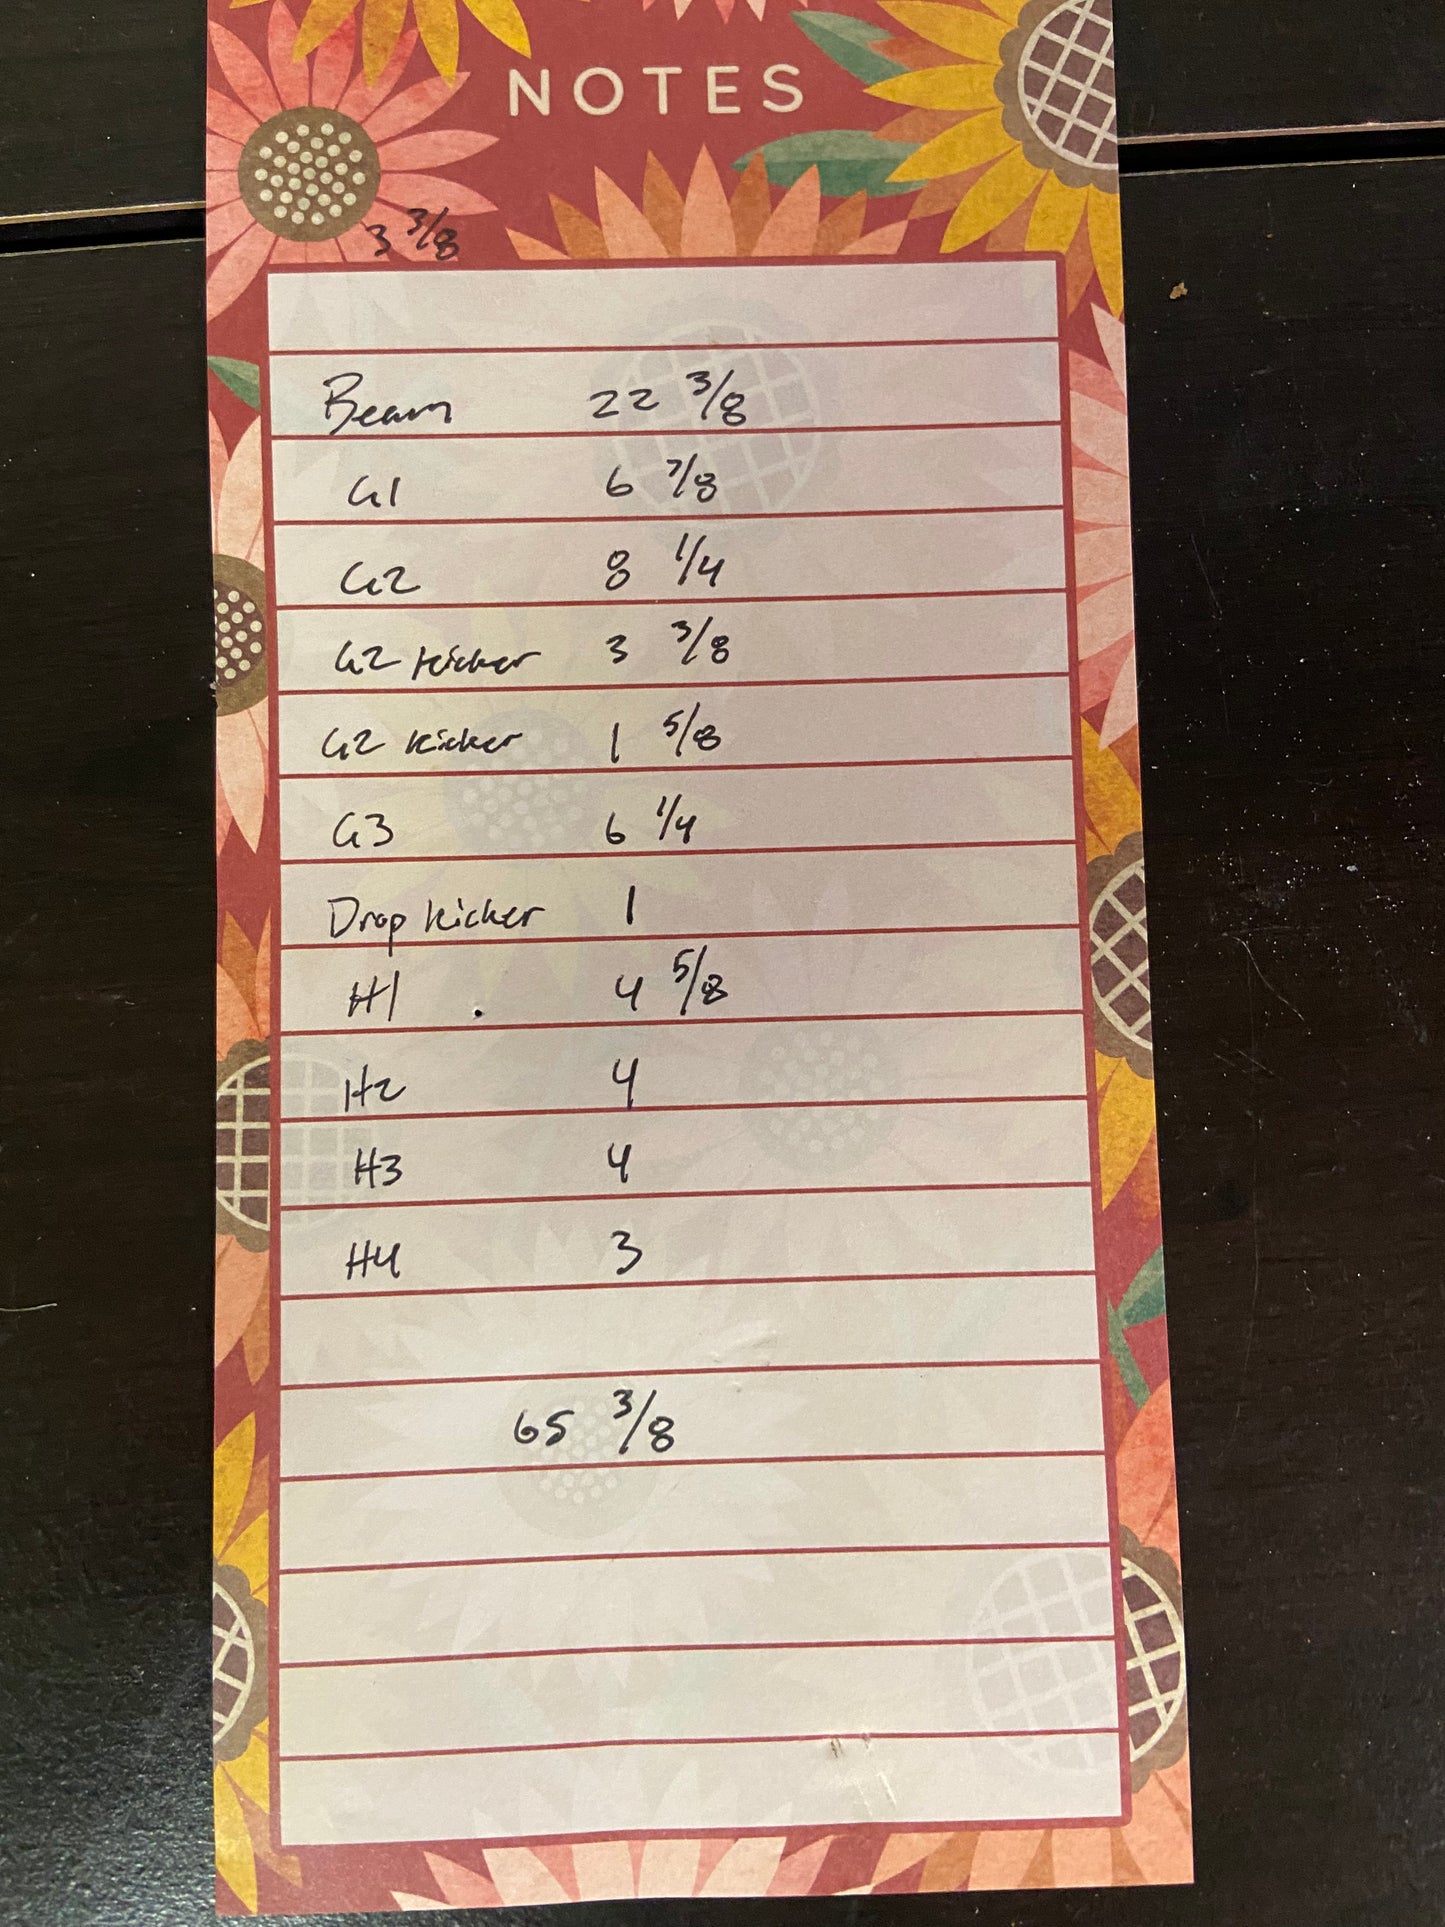 NOTES
3 3/8
Beam 22 3/8
G1 6 7/8
G2 8 1/4
G2 kicker 3 3/8
G2 kicker 1 5/8
G3 6 1/4
Drop kicker 1
H1 4 5/8
H2 4
H3 4
H4 3
65 3/8